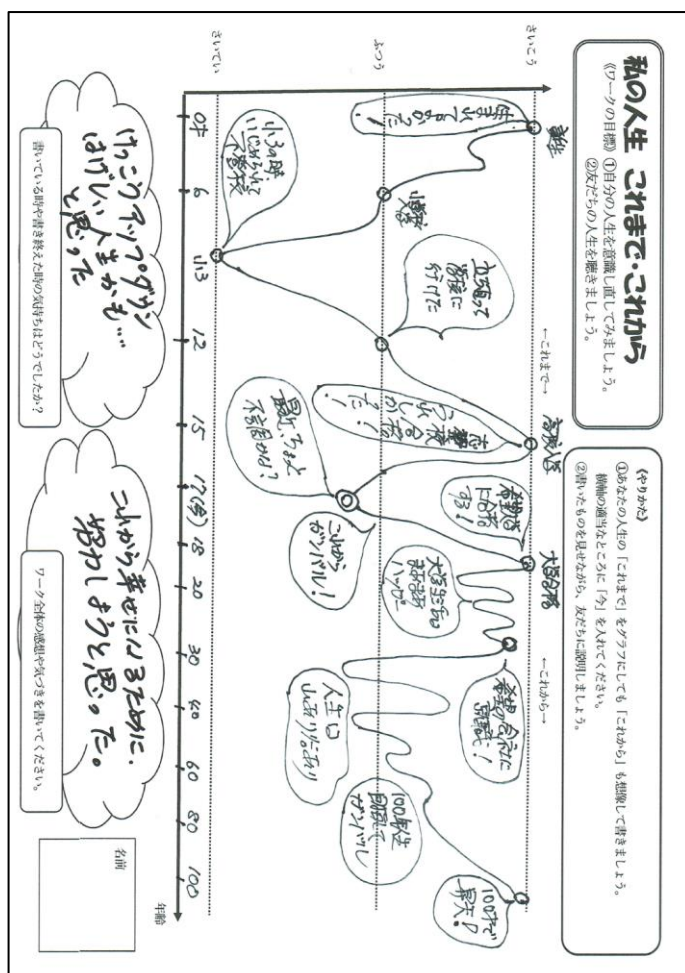 私の人生 これまで・これから
《ワークの目標》①自分の人生を意識し直してみましょう。
②友だちの人生を聴きましょう。
《やりかた》
①あなたの人生の「これまで」をグラフにしても「これから」も想像して書きましょう。
横軸の適当なところに「今」を入れてください。
②書いたものを見せながら、友だちに説明しましょう。
←これまで→
←これから→
さいこう
ふつう
さいてい
誕生
生まれてよかった!
小3の時
いじめられて
不登校
行けた
高校入学
合格
うれしかった!
最近、ちょっと
これから
ガンバル!
に合格
する!
大学合格
大学生活も
ハッピー
希望の会社に
就職!
人生は
山あり谷あり
100年人生
目指して
ガンバル
100才で
昇天!
0才
6
小3
12
15
17(今)
18
20
30
40
60
80
100
年齢
けっこうアップダウン
はげしい人生かも……
と思った
書いている時や書き終えた時の気持ちはどうでしたか?
これから幸せになるために、
努力しようと思った。
ワーク全体の感想や気づきを書いてください。
名前